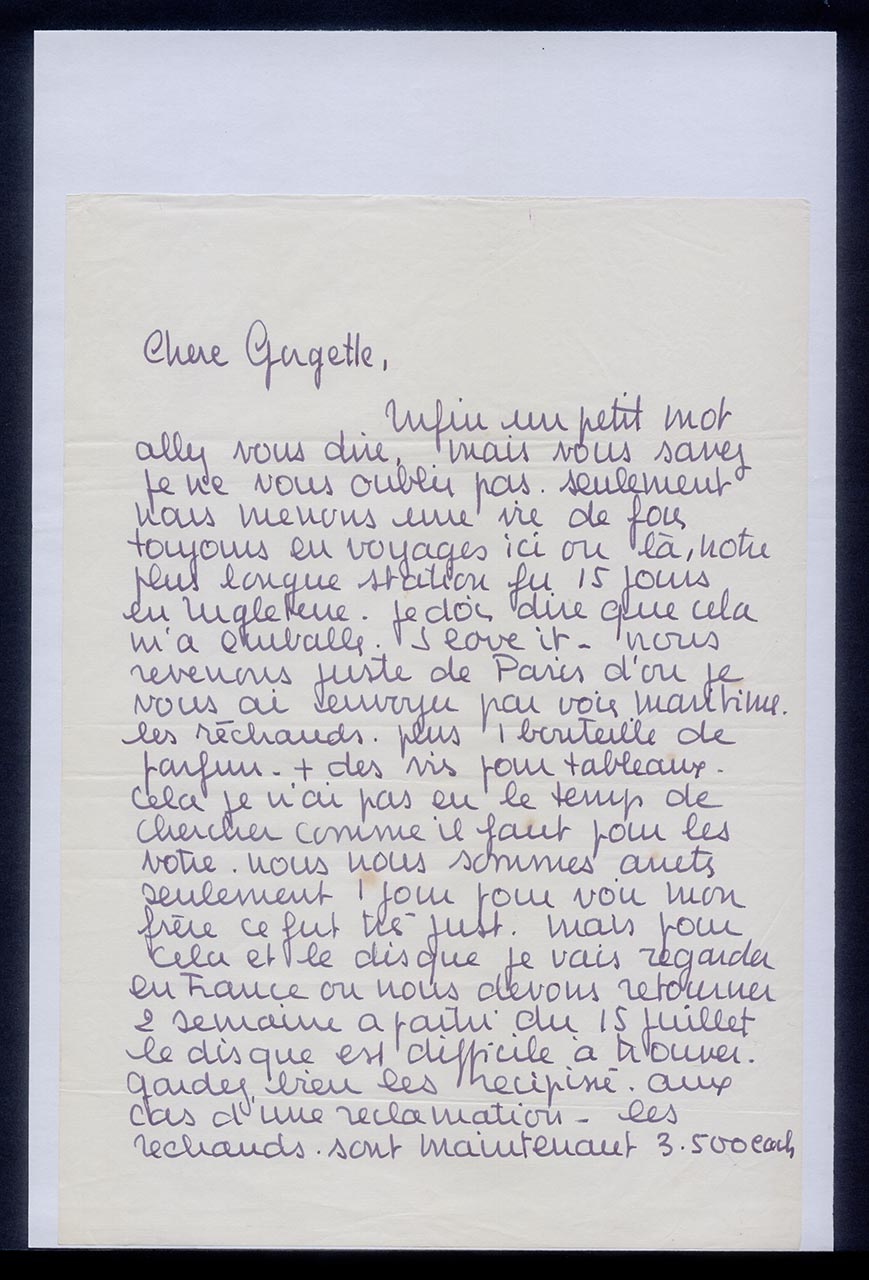 Chere Gorgette,
Enfin un petit mot
allez vous dire, mais vous savez
je ne vous oublie pas. seulement
nous menons une vie de fous
toujours en voyages ici ou là, notre
plus longue station fu 15 jours
en Engleterre. je dois dire que cela
m'a emballé. I love it - nous
revenons juste de Paris d'ou je
vous ai envoyer par voie maritime.
les réchauds. plus 1 bouteille de
parfum - + des vis pour tableaux.
cela je n'ai pas eu le temp de
chercher comme il faut pour les
votre. nous nous sommes arrets
seulement 1 jour pour voir mon
frère ce fut très just. mais pour
cela et le disque je vais regarder
en France ou nous devons retourner
2 semaine a partir du 15 juillet
le disque est difficile à trouver.
gardez bien les recipissé. aux
cas d'une reclamation - les
rechauds. sont maintenant 3.500 each